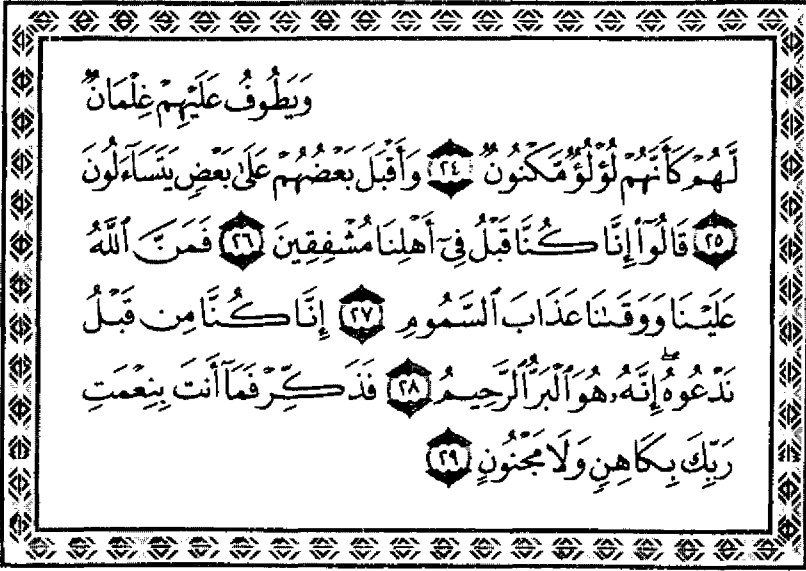 وَيَطُوفُ عَلَيْهِمْ غِلْمَانٌ
لَّهُمْ كَأَنَّهُمْ لُؤْلُؤٌ مَّكْنُونٌ ﴿٢٤﴾ وَأَقْبَلَ بَعْضُهُمْ عَلَىٰ بَعْضٍ يَتَسَآءَلُونَ
﴿٢٥﴾ قَالُوٓا۟ إِنَّا كُنَّا قَبْلُ فِىٓ أَهْلِنَا مُشْفِقِينَ ﴿٢٦﴾ فَمَنَّ ٱللَّهُ
عَلَيْنَا وَوَقَىٰنَا عَذَابَ ٱلسَّمُومِ ﴿٢٧﴾ إِنَّا كُنَّا مِن قَبْلُ
نَدْعُوهُ ۖ إِنَّهُۥ هُوَ ٱلْبَرُّ ٱلرَّحِيمُ ﴿٢٨﴾ فَذَكِّرْ فَمَآ أَنتَ بِنِعْمَتِ
رَبِّكَ بِكَاهِنٍ وَلَا مَجْنُونٍ ﴿٢٩﴾